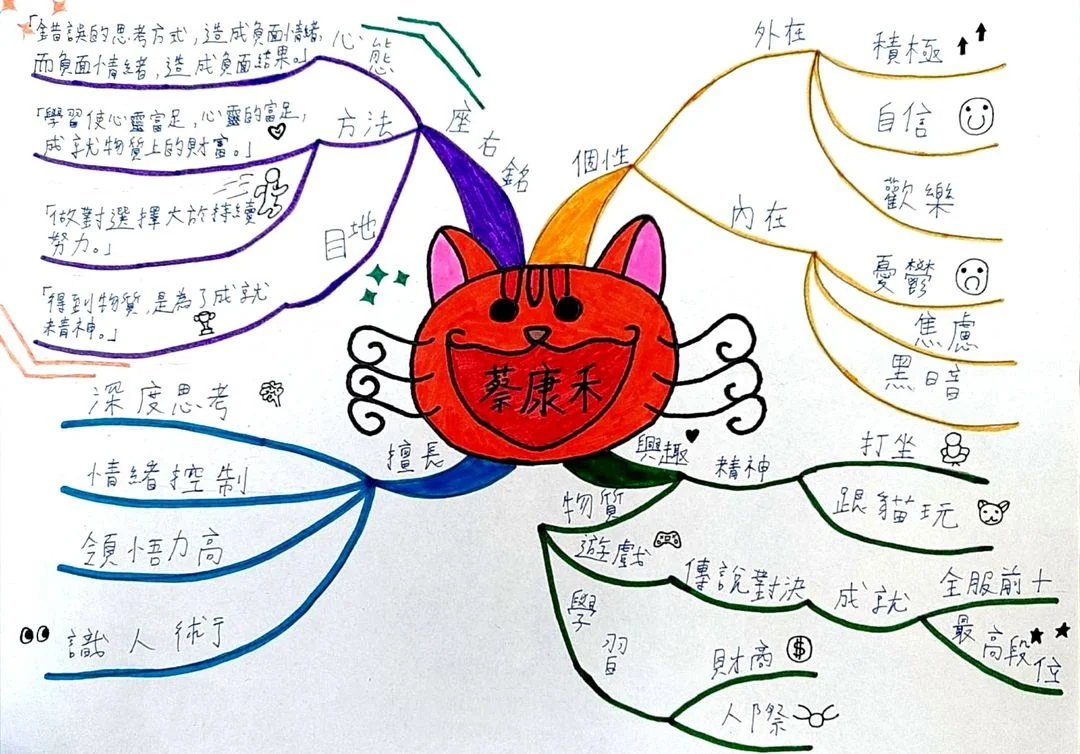 蔡康禾
座右銘
心態
「錯誤的思考方式,造成負面情緒,
而負面情緒,造成負面結果。」
方法
「學習使心靈富足,心靈的富足,
成就物質上的財富。」
「做對選擇大於持續
努力。」
目地
「得到物質,是為了成就
精神。」
個性
外在
積極
自信
歡樂
內在
憂鬱
焦慮
黑暗
擅長
深度思考
情緒控制
領悟力高
識人術
興趣
精神
打坐
跟貓玩
物質
遊戲
傳說對決
成就
全服前十
最高段位
學習
財商
$
人際